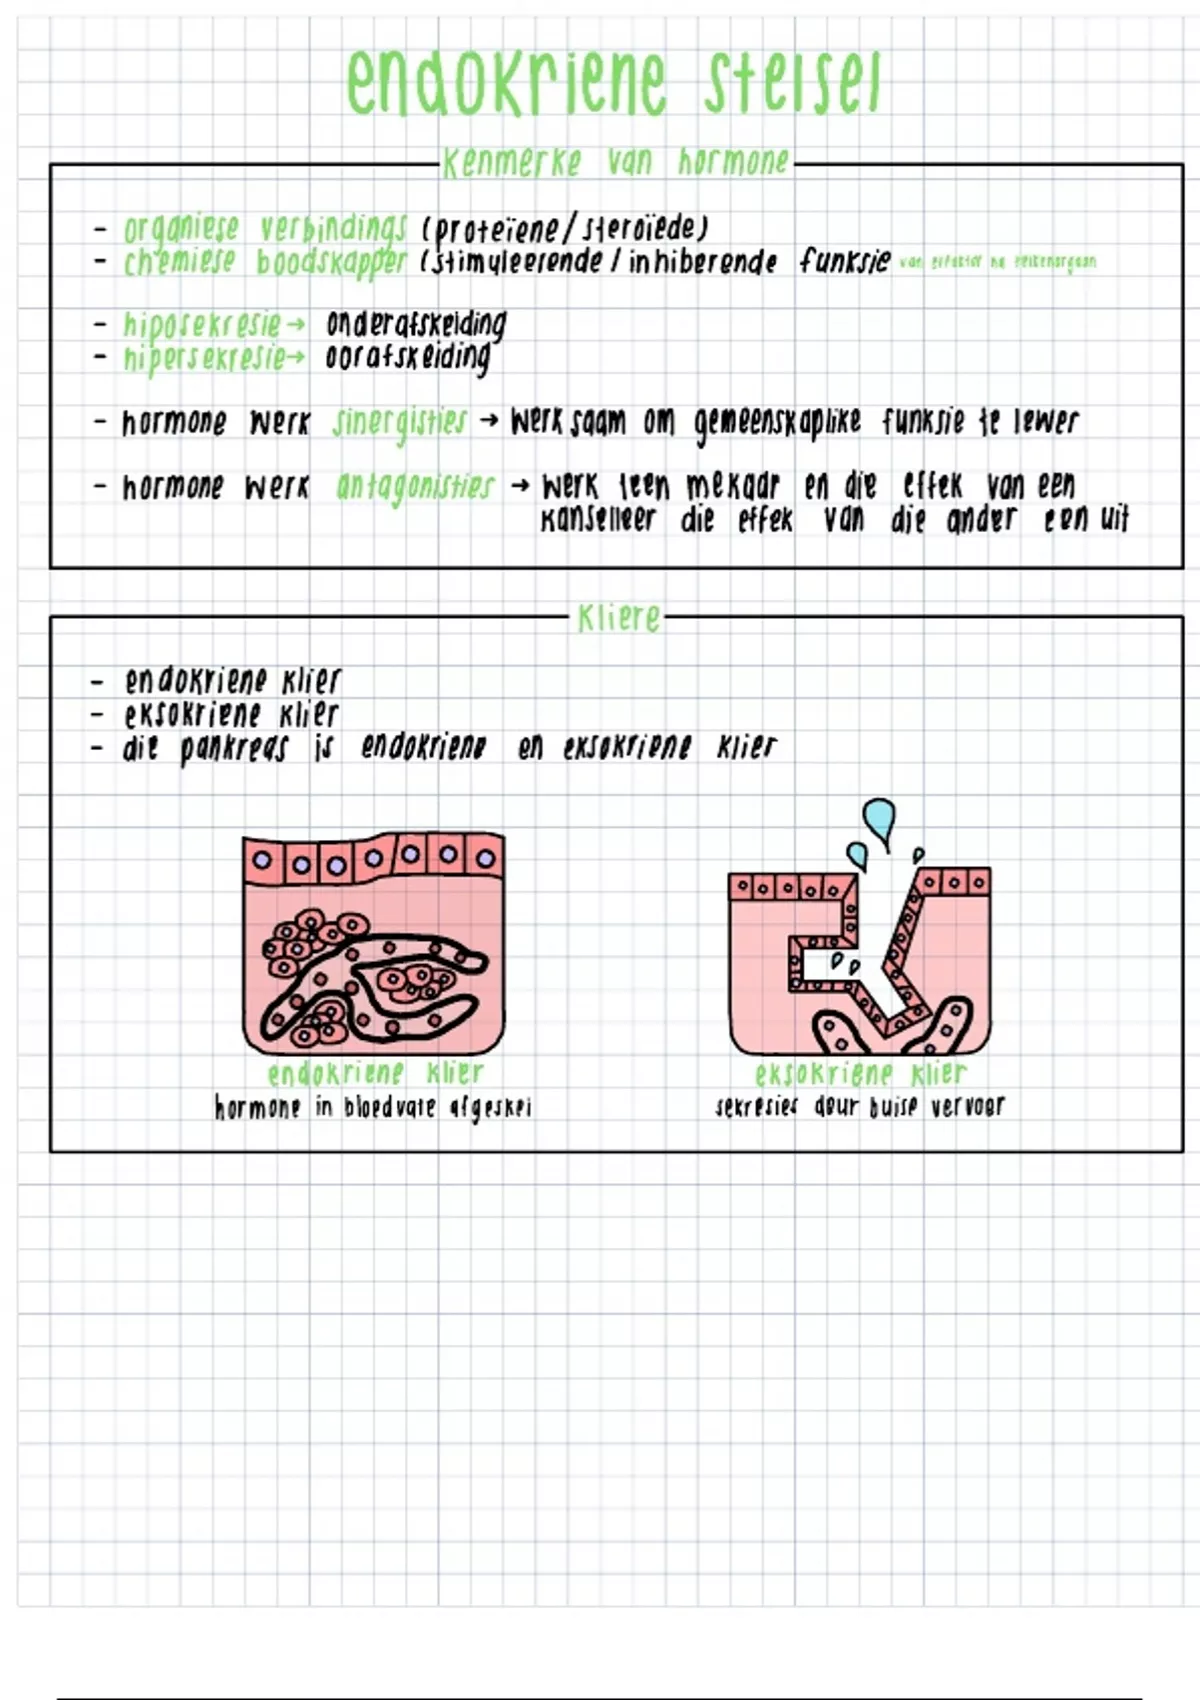 endokriene stelsel
Kenmerke van hormone
- organiese verbindings (proteïene/steroïede)
- chemiese boodskapper (stimuleerende/inhiberende funksie van effektor na teikenorgaan
- hiposekresie → onderafskeiding
- hipersekresie → oorafskeiding
- hormone werk sinergisties → werk saam om gemeenskaplike funksie te lewer
- hormone werk antagonisties → werk teen mekaar en die effek van een
kanselleer die effek van die ander een uit
Kliere
- endokriene klier
- eksokriene klier
- die pankreas is endokriene en eksokriene klier
endokriene klier
hormone in bloedvate afgeskei
eksokriene klier
sekresies deur buise vervoer